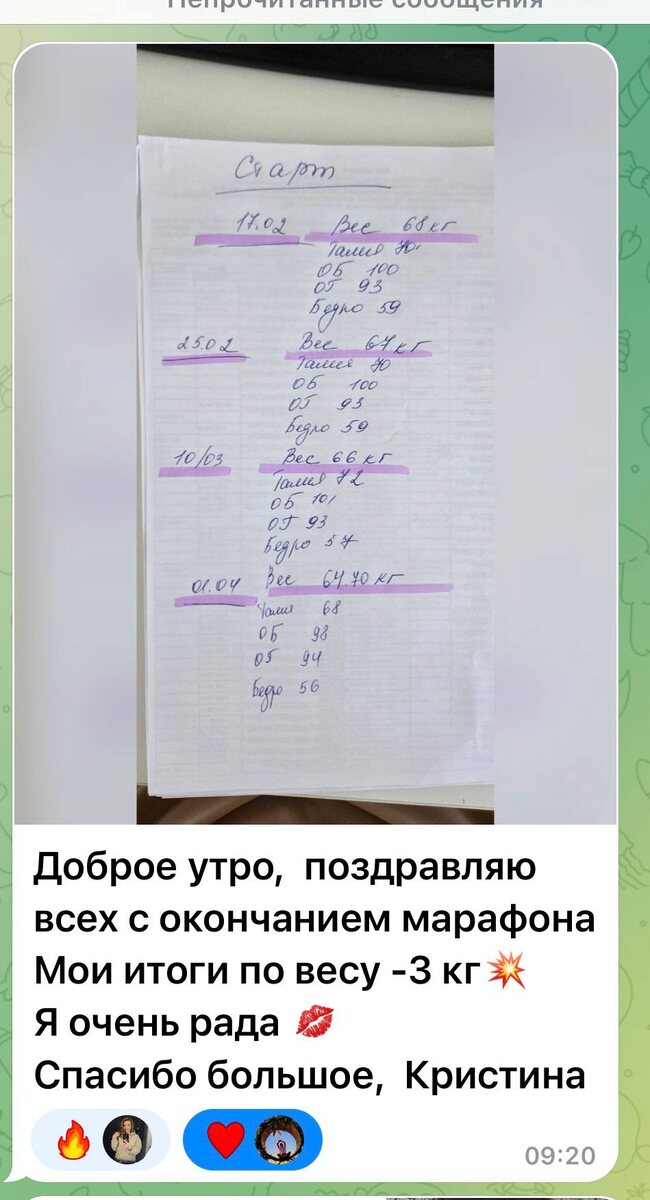 Непрочитанные сообщения
Старт
17.02 Вес 68 кг
Талия 70
ОБ 100
ОГ 93
Бедро 59
25.02 Вес 67 кг
Талия 70
ОБ 100
ОГ 93
Бедро 59
10/03 Вес 66 кг
Талия 72
ОБ 101
ОГ 93
Бедро 57
01.04 Вес 64.70 кг
Талия 68
ОБ 98
ОГ 94
Бедро 56
Доброе утро, поздравляю
всех с окончанием марафона
Мои итоги по весу -3 кг💥
Я очень рада 💋
Спасибо большое, Кристина
09:20